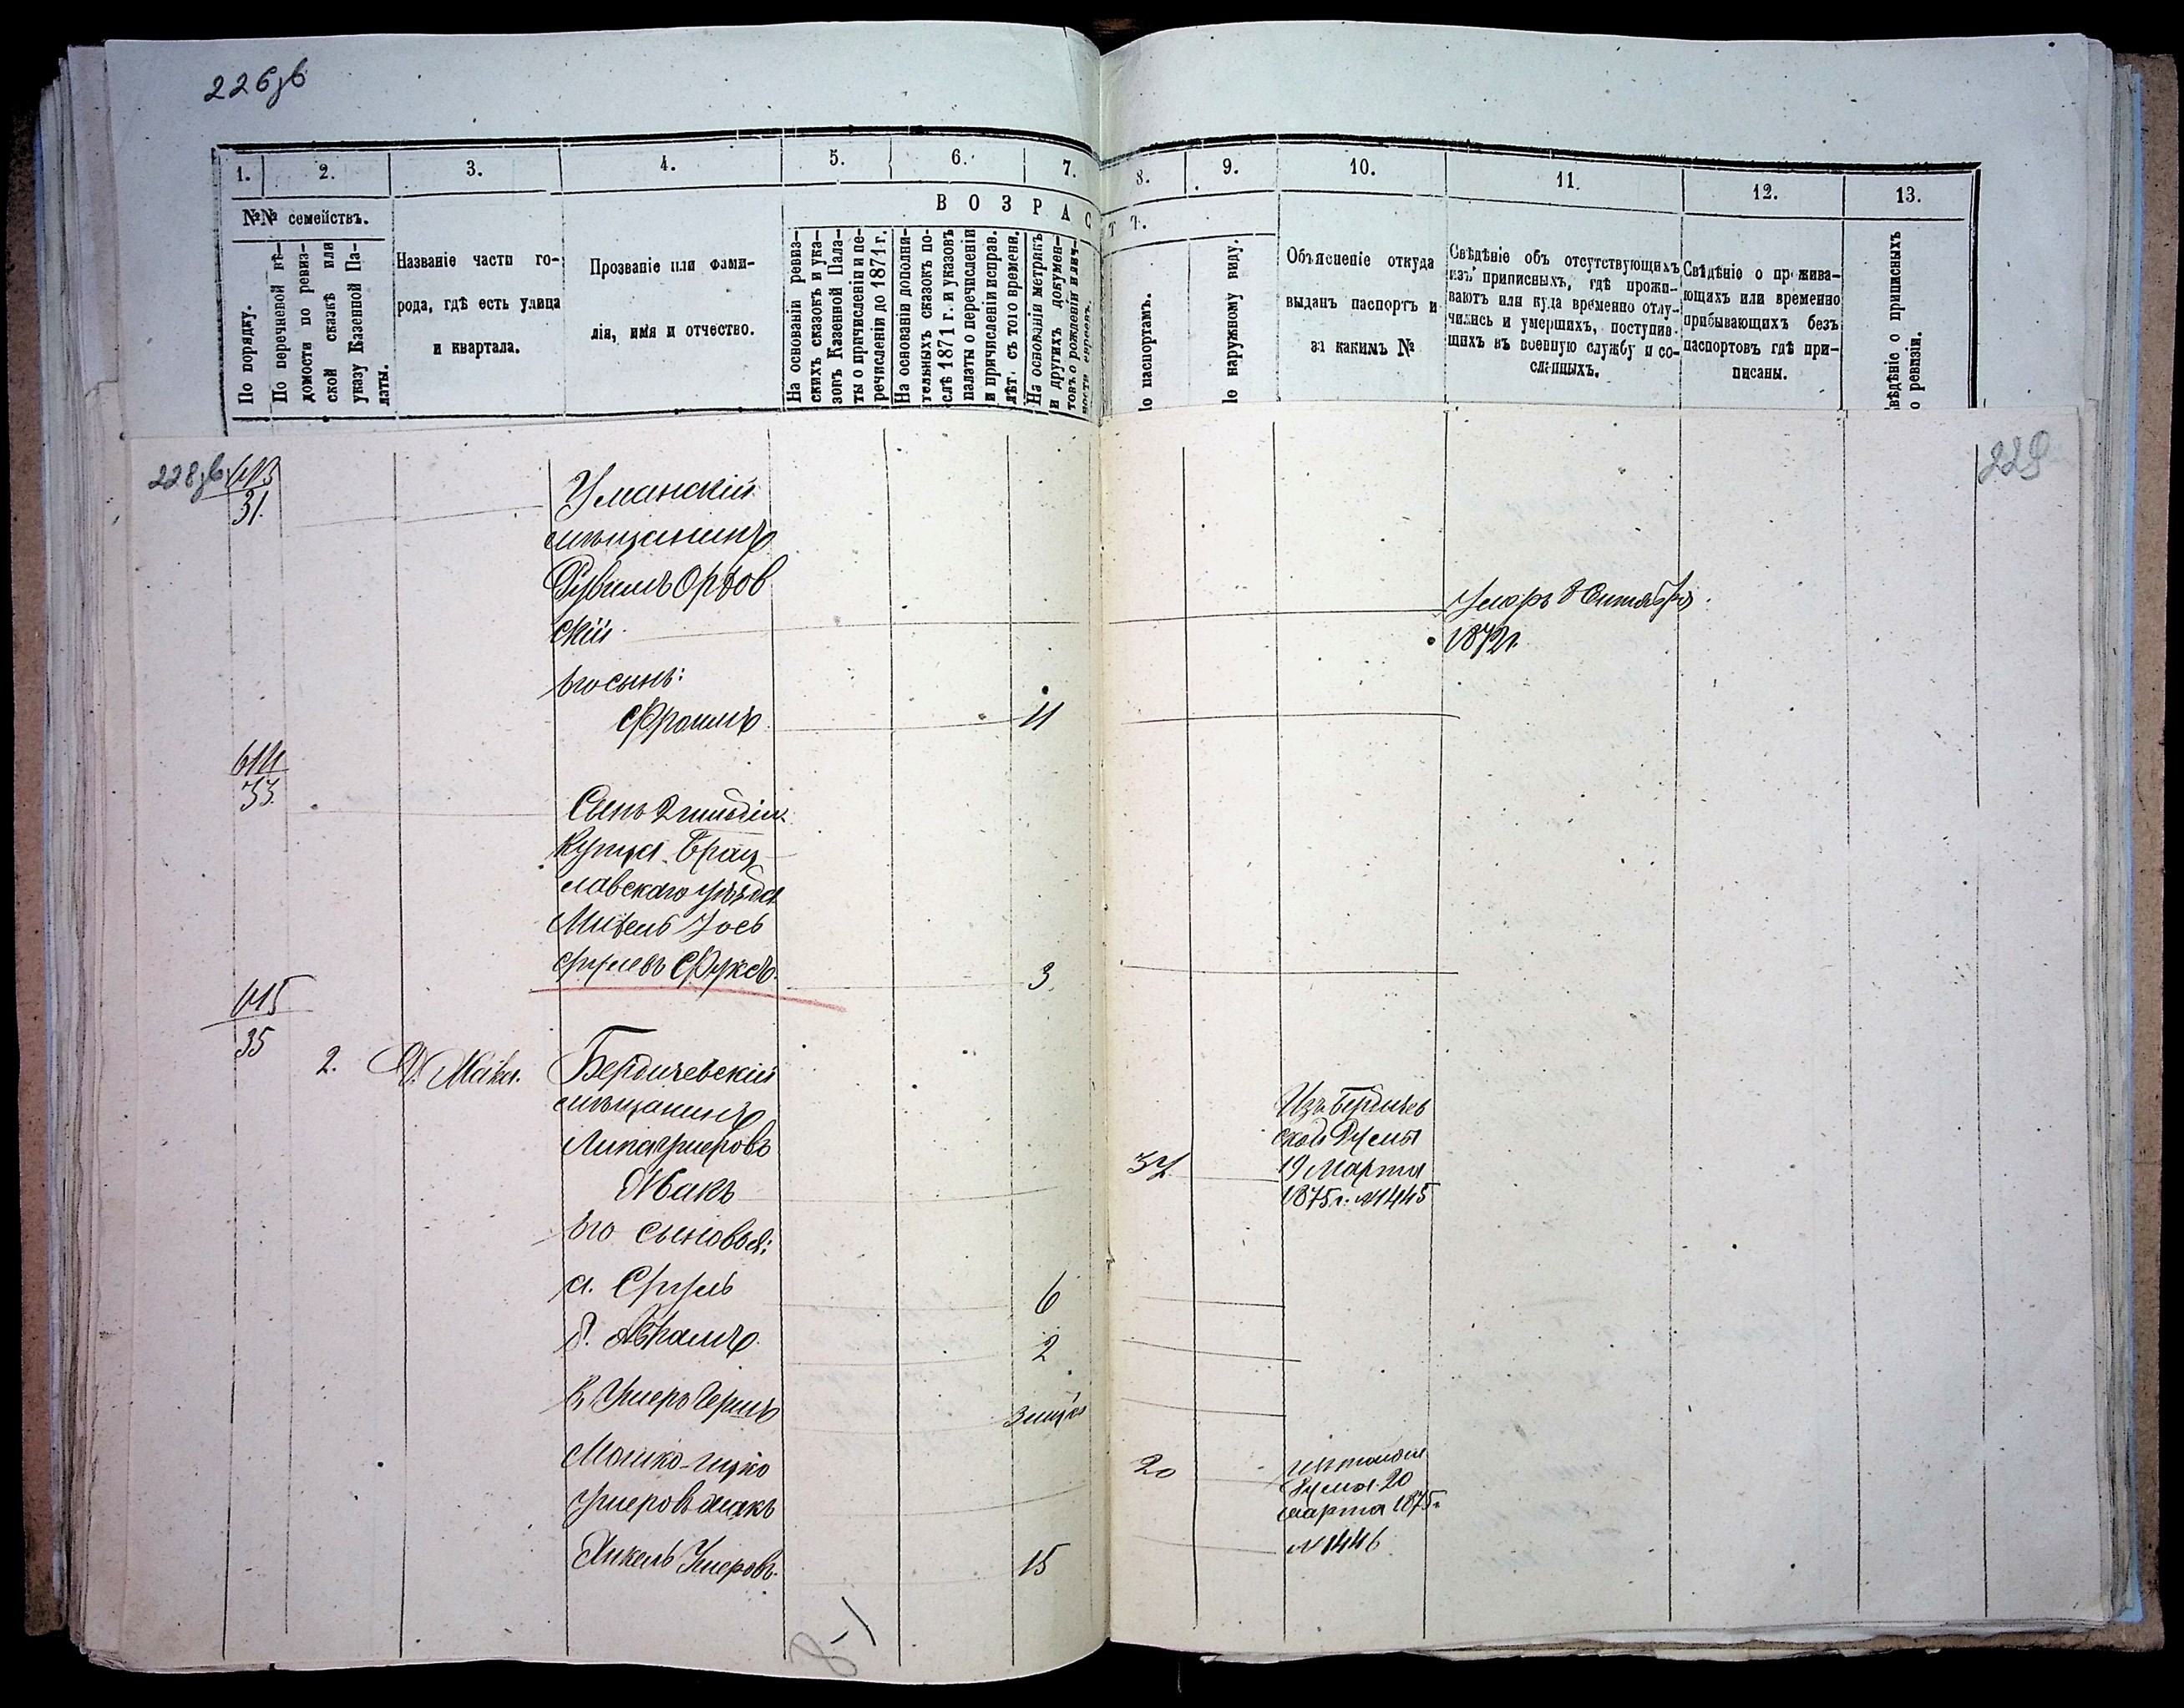 226зв
1. 2. 3. 4. 5. 6. 7. 8. 9. 10. 11. 12. 13.
№№ семействъ.
ВОЗРАСТЪ.
По порядку.
По перечневой вѣ-
домости по ревиз-
ской сказкѣ или
указу Казенной Па-
латы.
Названіе части го-
рода, гдѣ есть улица
и квартала.
Прозваніе или фами-
лія, имя и отчество.
На основаніи ревиз-
скихъ сказокъ и ука-
зовъ Казенной Пала-
ты о причисленіи и пе-
речисленіи до 1871 г.
На основаніи дополни-
тельныхъ сказокъ по-
слѣ 1871 г. и указовъ
палаты о перечисленіи
и причисленіи исправ.
лѣт. съ того времени.
На основаніи метрикъ
и другихъ докумен-
товъ о рожденіи и лич-
ности евреевъ.
По паспортамъ.
По наружному виду.
Объясненіе откуда
выданъ паспортъ и
за какимъ №
Свѣдѣніе объ отсутствующихъ
изъ приписныхъ, гдѣ прожи-
ваютъ или куда временно отлу-
чились и умершихъ, поступив-
щихъ въ военную службу и со-
сланныхъ.
Свѣдѣніе о прожива-
ющихъ или временно
прибывающихъ безъ
паспортовъ гдѣ при-
писаны.
Свѣдѣніе о приписныхъ
по ревизіи.
228зв
229
613
31.
Уманскій
мѣщанинъ
Рувимъ Ордов
скій
Умеръ 8 Октября
1872 г.
Его сынъ:
Фроимъ 11
614
33.
Сынъ 2 гильдіи
Купца Брац
лавскаго уѣзда
Мизель Іос
Фуксъ. 3
615
35
2.
Бердичевскій
мѣщанинъ
Липа Ушеровъ
Акъ
37
Изъ Бердичев
ской Думы
19 Марта
1875 г. №1445
Его сыновья:
а. Сруль 6
б. Абрамъ 2
в. Ушеръ Гершъ 3 мѣс
Мошко-Ицко
Ушеровъ
20
Дума 20
марта 1875 г
№1446
Янкель Ушеровъ. 15
8-1